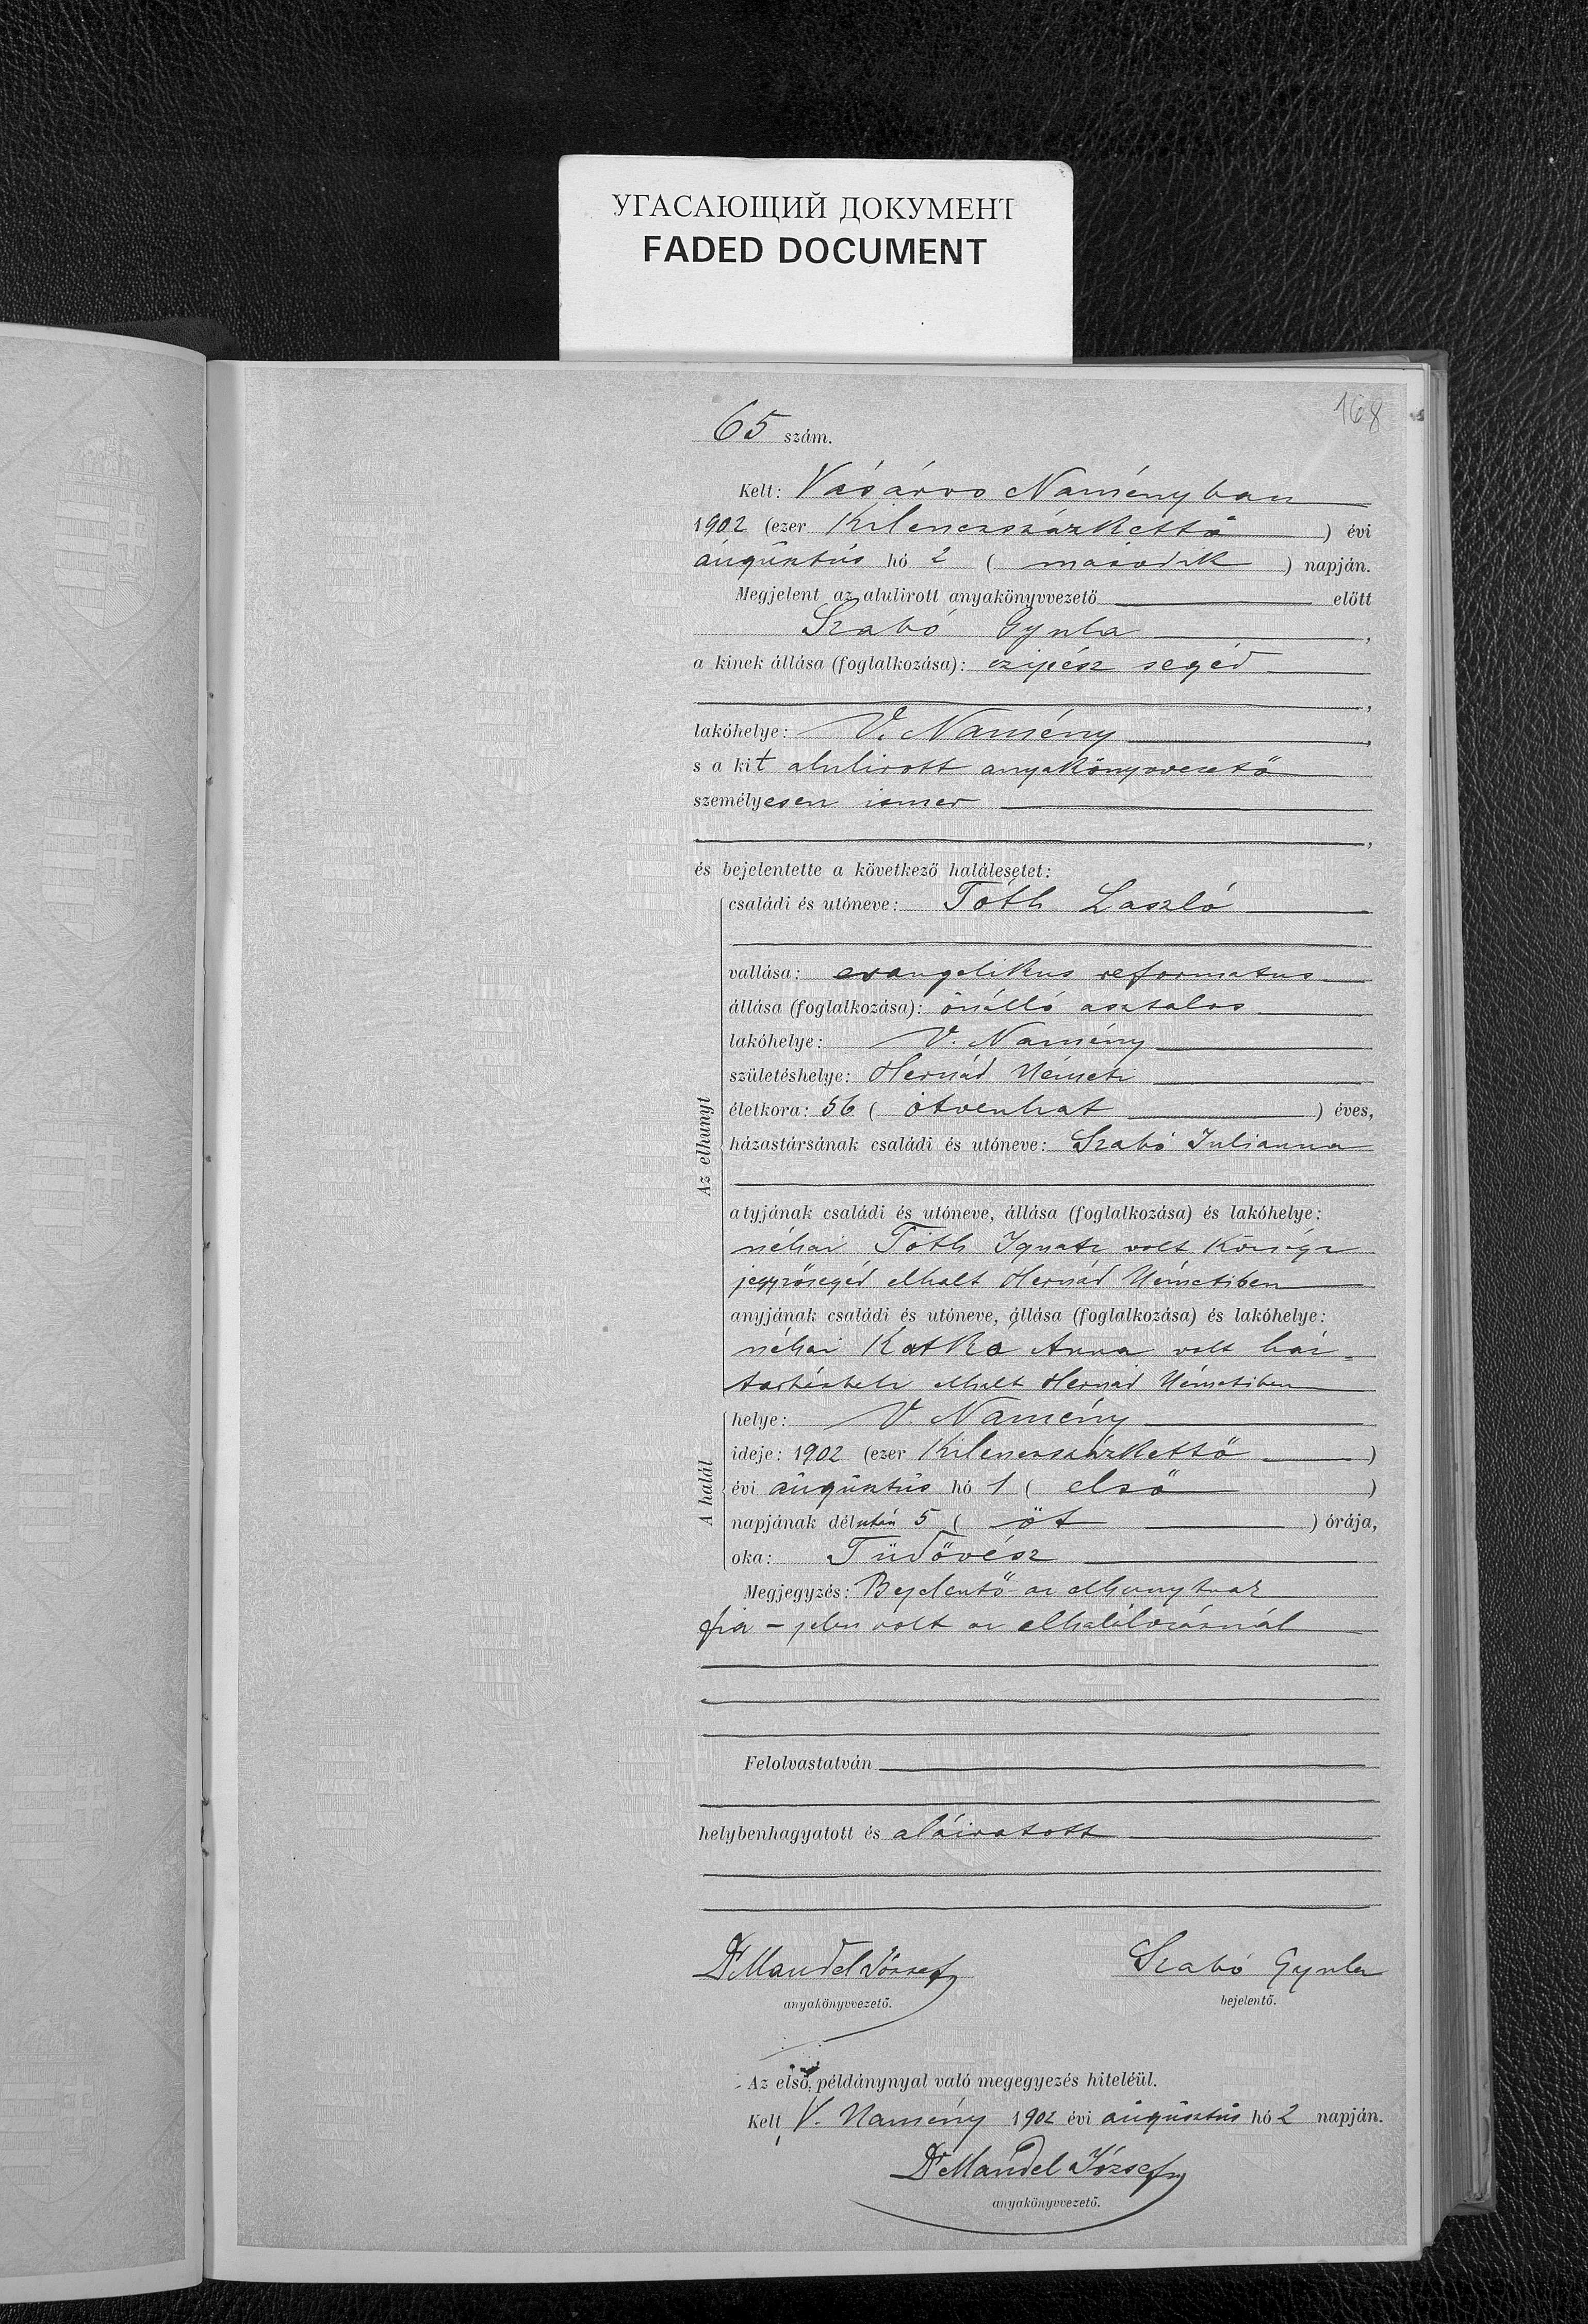 УГАСАЮЩИЙ ДОКУМЕНТ
FADED DOCUMENT
168
65 szám.
Kelt: Vásáros Naményban
1902 (ezer Kilenczszázkettő) évi
augusztus hó 2 ( második ) napján.
Megjelent az alulirott anyakönyvvezető előtt
Szabó Gyula,
a kinek állása (foglalkozása): czipész segéd
,
lakóhelye: V. Namény,
s a kit alulirott anyakönyvvezető
személyesen ismer
,
és bejelentette a következő halálesetet:
Az elhunyt
családi és utóneve: Tóth Laszló
vallása: evangelikus reformatus
állása (foglalkozása): önálló asztalos
lakóhelye: V. Namény
születéshelye: Hernád Németi
életkora: 56 ( ötvenhat ) éves,
házastársának családi és utóneve: Szabó Julianna
atyjának családi és utóneve, állása (foglalkozása) és lakóhelye:
néhai Tóth Ignatz volt Községi
jegyzősegéd elhalt Hernád Németiben
anyjának családi és utóneve, állása (foglalkozása) és lakóhelye:
néhai Katka Anna volt ház-
elhalt Hernád Németiben
A halál
helye: V. Namény
ideje: 1902 (ezer Kilenczszázkettő )
évi augusztus hó 1 ( első )
napjának délután 5 ( öt ) órája,
oka: Tüdővész
Megjegyzés: Bejelentő az elhunytnak
fia - jelen volt az elhalálozásnál
Felolvastatván
helybenhagyatott és aláiratott
Dr Mandel József
Szabó Gyula
anyakönyvvezető.
bejelentő.
Az első példánynyal való megegyezés hiteléül.
Kelt V. Namény 1902 évi augusztus hó 2 napján.
Dr Mandel József
anyakönyvvezető.